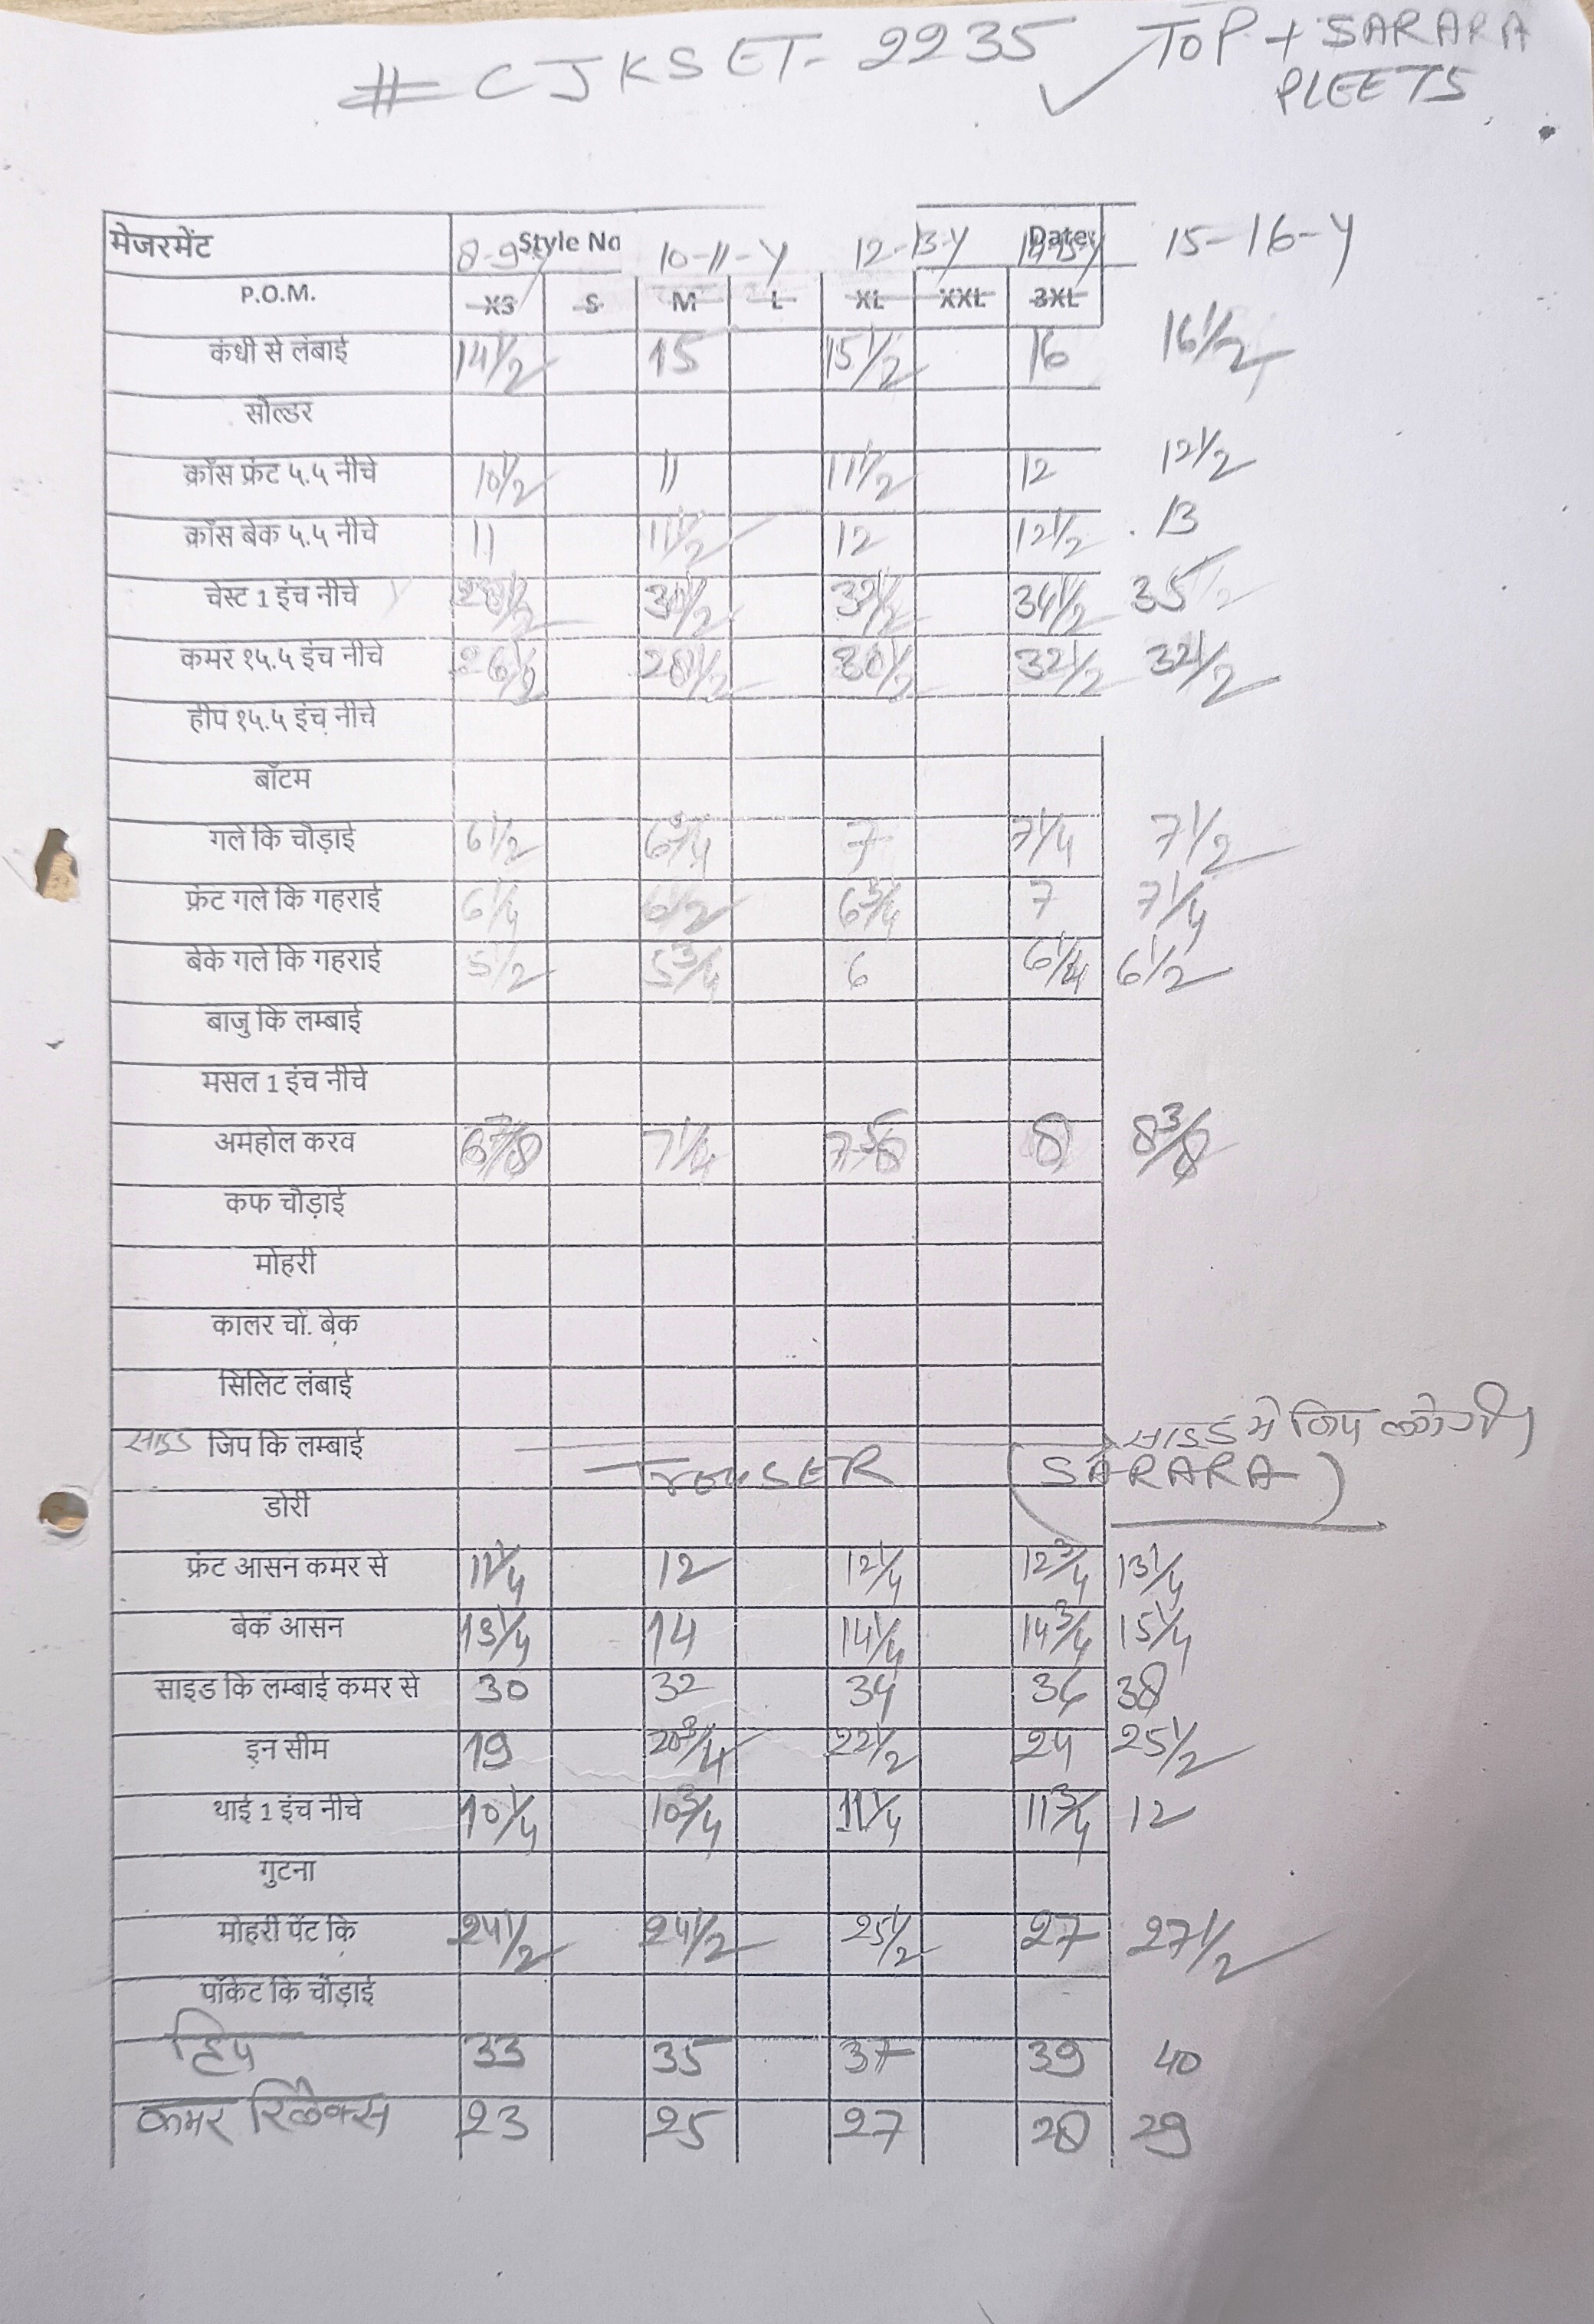 # CJKSET-2235 ✓ TOP + SARARA
PLEETS
मेजरमेंट 8-9-Y Style No 10-11-Y 12-13-Y Date: 14-15-Y 15-16-Y
P.O.M. XS S M L XL XXL 3XL
कंधी से लंबाई 14 1/2 15 15 1/2 16 16 1/2
सोल्डर
क्रॉस फ्रंट ५.५ नीचे 10 1/2 11 11 1/2 12 12 1/2
क्रॉस बेक ५.५ नीचे 11 11 1/2 12 12 1/2 13
चेस्ट 1 इंच नीचे 28 1/2 30 1/2 32 1/2 34 1/2 35
कमर १५.५ इंच नीचे 26 1/2 28 1/2 30 1/2 32 1/2 32 1/2
हीप १५.५ इंच नीचे
बॉटम
गले कि चौड़ाई 6 1/2 6 3/4 7 7 1/4 7 1/2
फ्रंट गले कि गहराई 6 1/4 6 1/2 6 3/4 7 7 1/4
बेके गले कि गहराई 5 1/2 5 3/4 6 6 1/4 6 1/2
बाजु कि लम्बाई
मसल 1 इंच नीचे
अमहोल करव 6 7/8 7 1/4 7 5/8 8 8 3/8
कफ चौड़ाई
मोहरी
कालर चो. बेक
सिलिट लंबाई
साइड जिप कि लम्बाई साइड मे जिप लगेगी
TrouSER (SARARA)
डोरी
फ्रंट आसन कमर से 11 1/4 12 12 1/4 12 3/4 13 1/4
बेक आसन 13 1/4 14 14 1/4 14 3/4 15 1/4
साइड कि लम्बाई कमर से 30 32 34 36 38
इन सीम 19 20 3/4 22 1/2 24 25 1/2
थाई 1 इंच नीचे 10 1/4 10 3/4 11 1/4 11 3/4 12
गुटना
मोहरी पेंट कि 24 1/2 24 1/2 25 1/2 27 27 1/2
पॉकेट कि चौड़ाई
हिप 33 35 37 39 40
कमर रिलेक्स 23 25 27 28 29